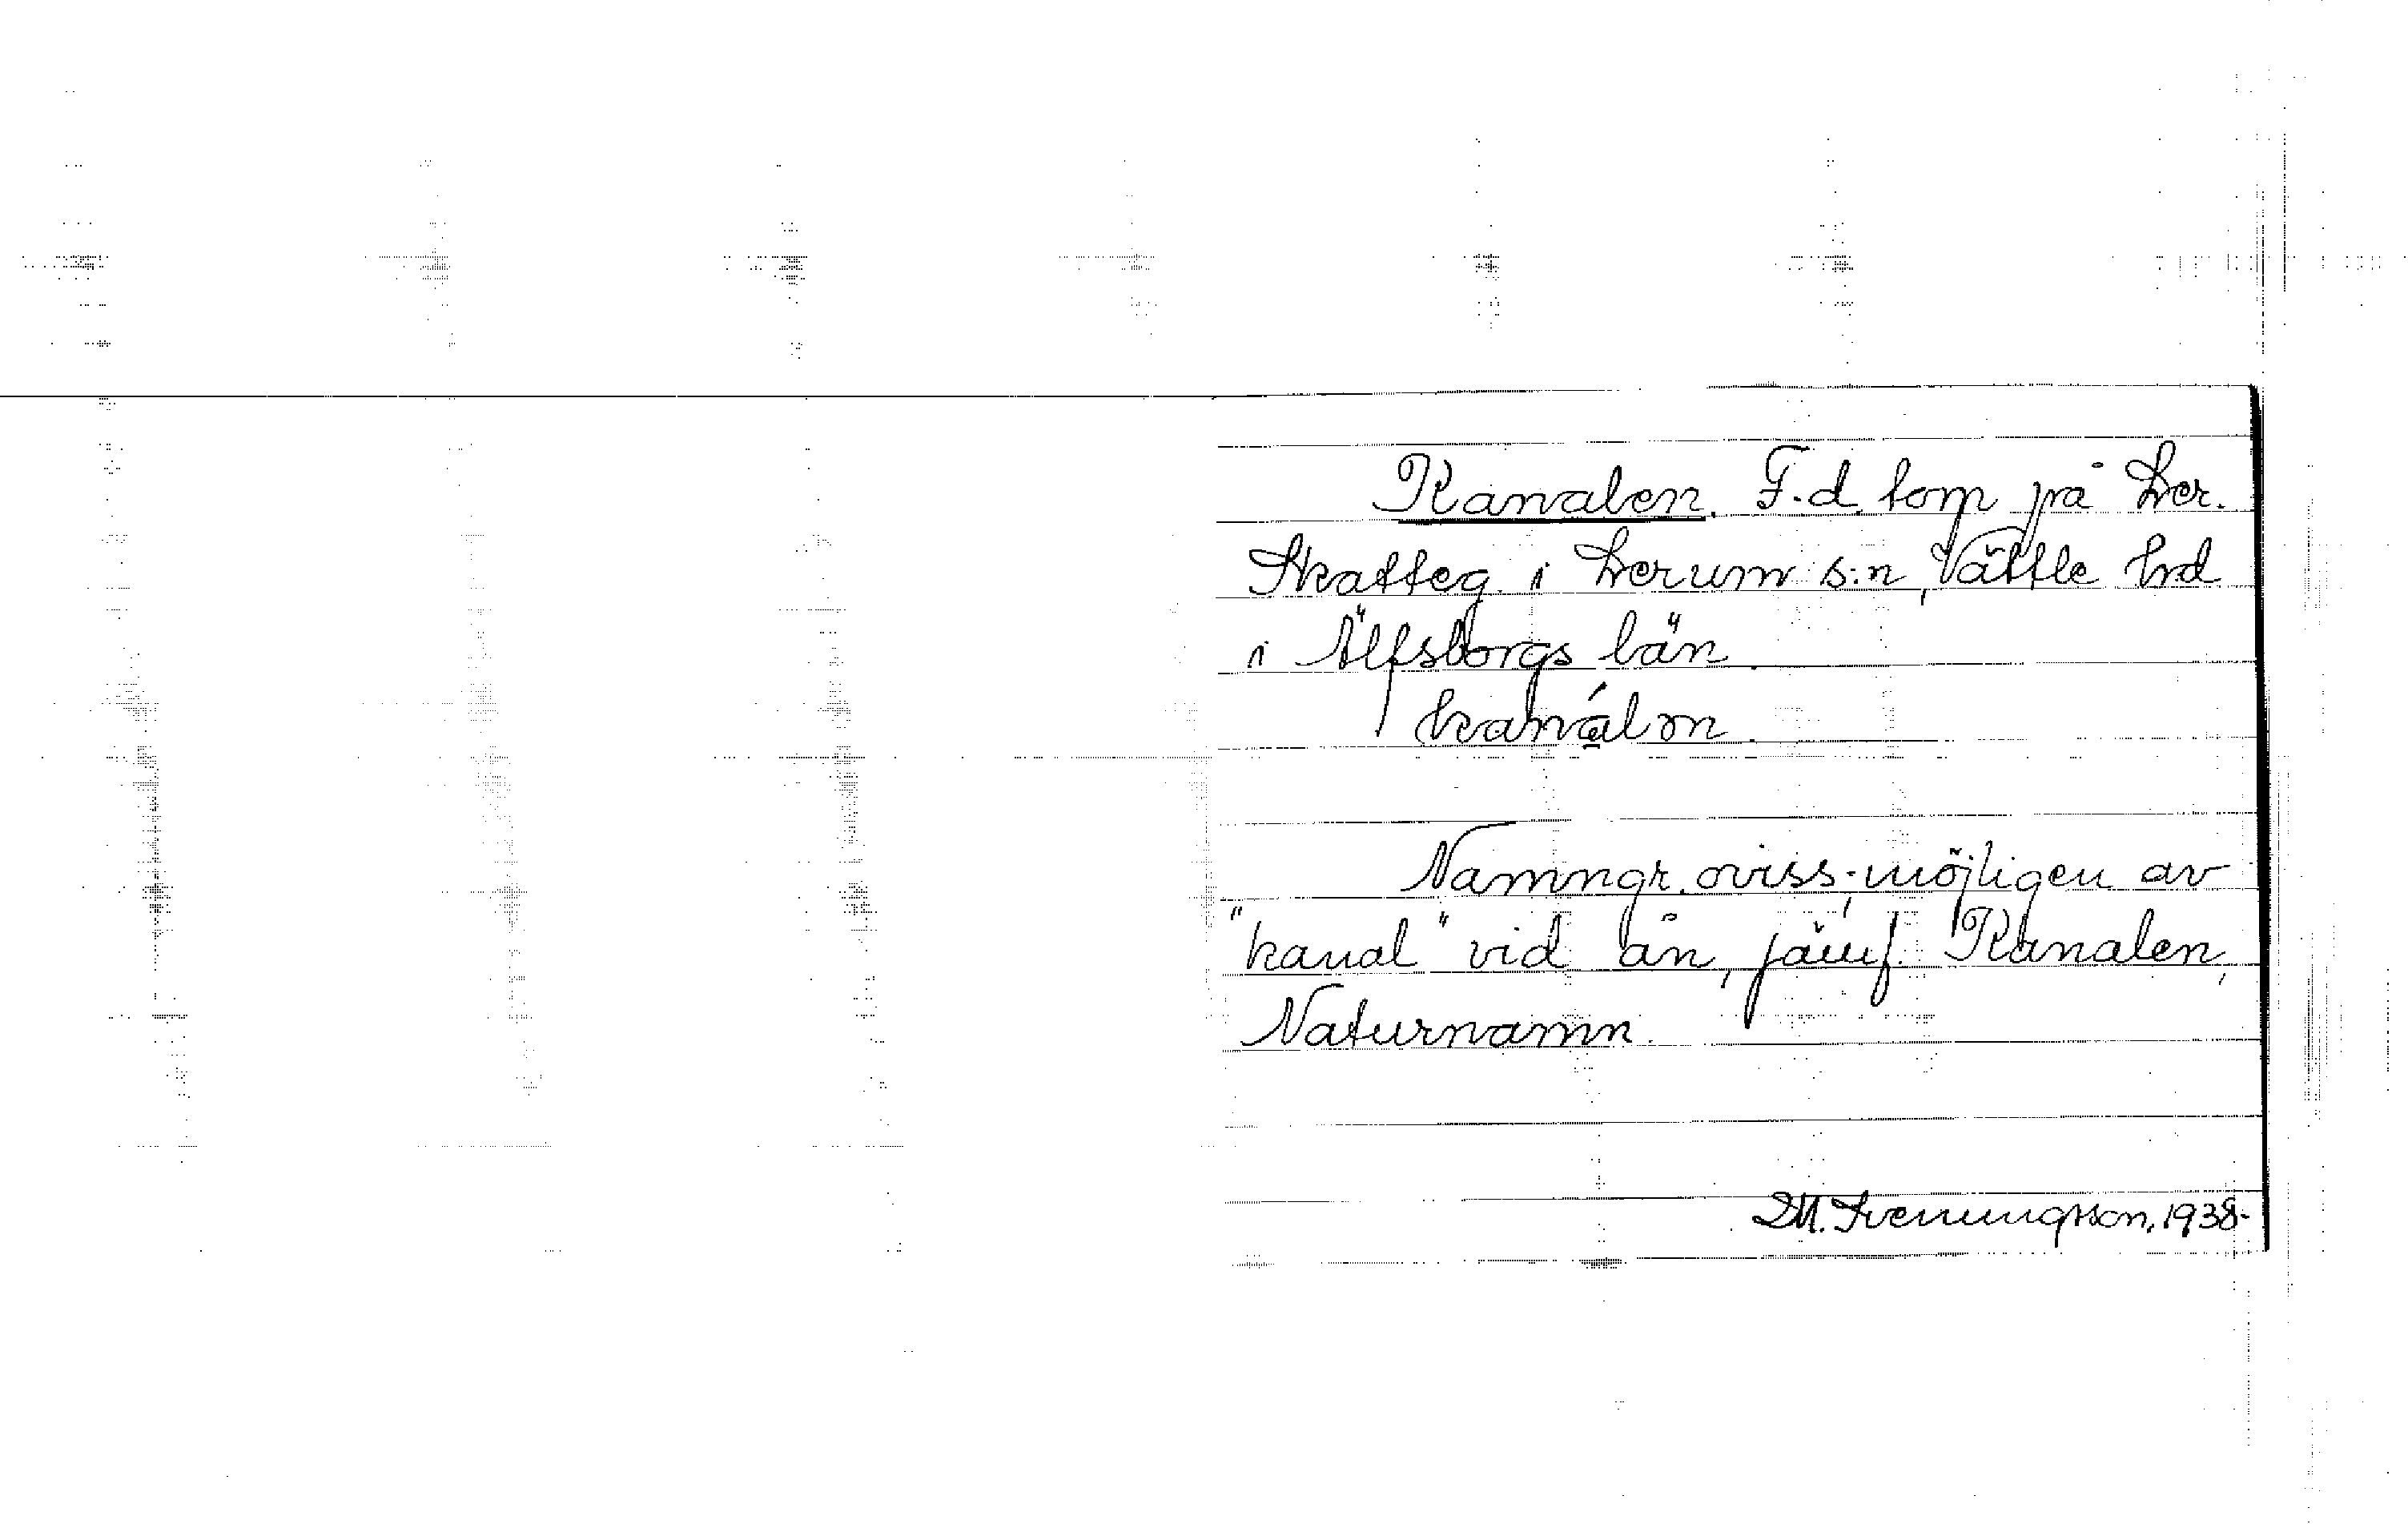 Kanalen. F.d. torp på Ler.
Skatteg. i Lerum s:n, Vättle hrd
i Älfsborgs län.
kanálәn.
Namngr. oviss; möjligen av
"kanal" vid ån, jämf. Kanalen,
Naturnamn.
M. Svenningsson, 1938.